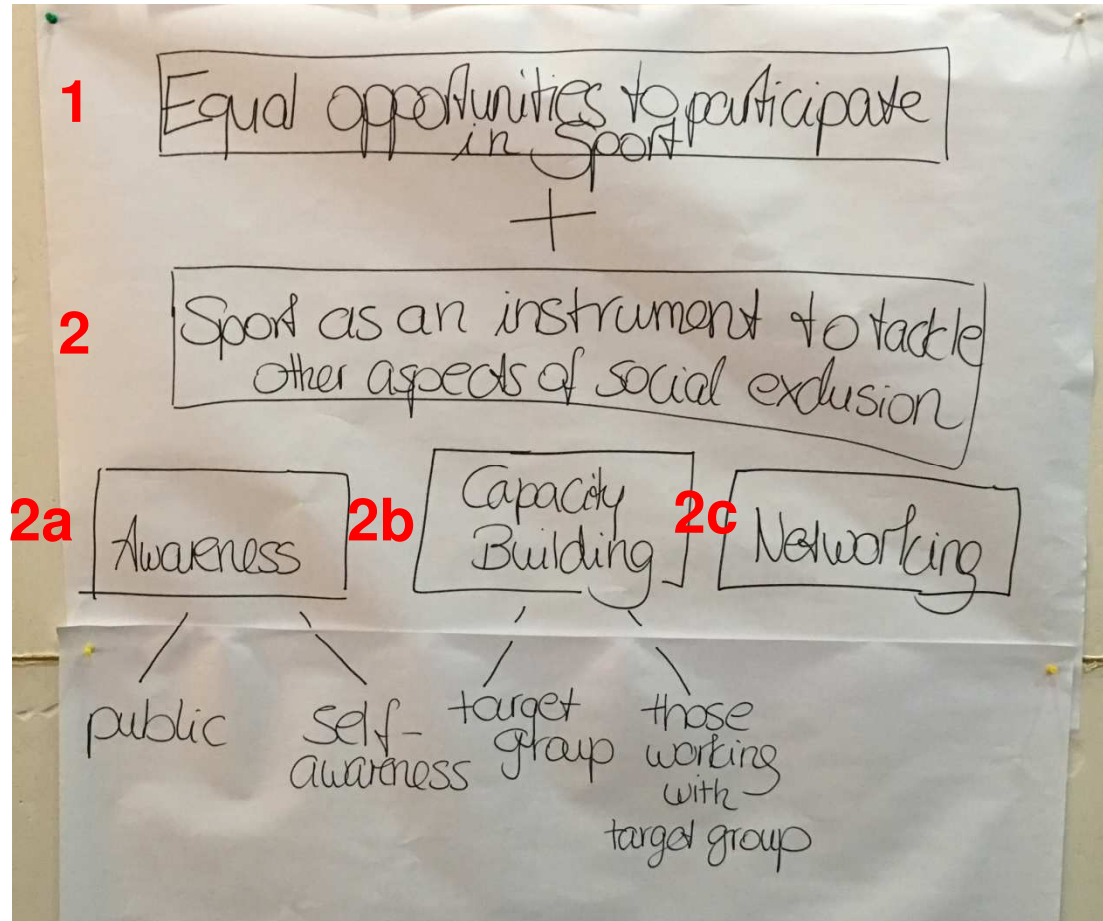 1
Equal opportunities to participate
in Sport
+
2
Sport as an instrument to tackle
other aspects of social exclusion
2a
Awareness
2b
Capacity
Building
2c
Networking
public
self-
awareness
target
group
those
working
with
target group